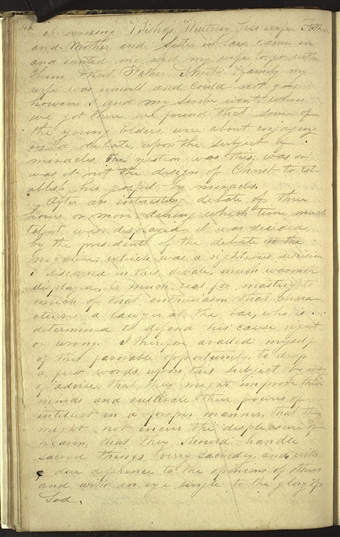 at evening Bishop Whitney his wife Father
and Mother, and Sister in law came in
and invited me and my wife to go with
them Father Smith's Family my
wife was unwell and could not go
however I and my Scribe went, when
we got there we found that some of
the young Elders were about engaging
in a debate, upon the subject of
miracles, the question was this, was or
was it not the design of Christ to est
ablish his gospel by miracles.
After an interesting debate of three
hours or more, during which time much
talent was displayed, it was decided
by the presidents of the debate in the
negative, which was a righteous decision
I discerned in this debate, much warmth
displayed, to much zeal for mastery, to
much of that enthusiasm that chara
cterises a lawyer at the bar, who is
determined to defend his cause right
or wrong. I therefore availed myself
of this favorable opportunity, to drop
a few words upon this subject by way
of advice, that they might improve their
minds and cultivate their powers of
intellect in a proper manner, that they
might not incur the displeasure of
heaven, that they should handle
sacred things verry sacredly, and with
a due deference to the opinions of others
and with an eye single to the glory of
God.